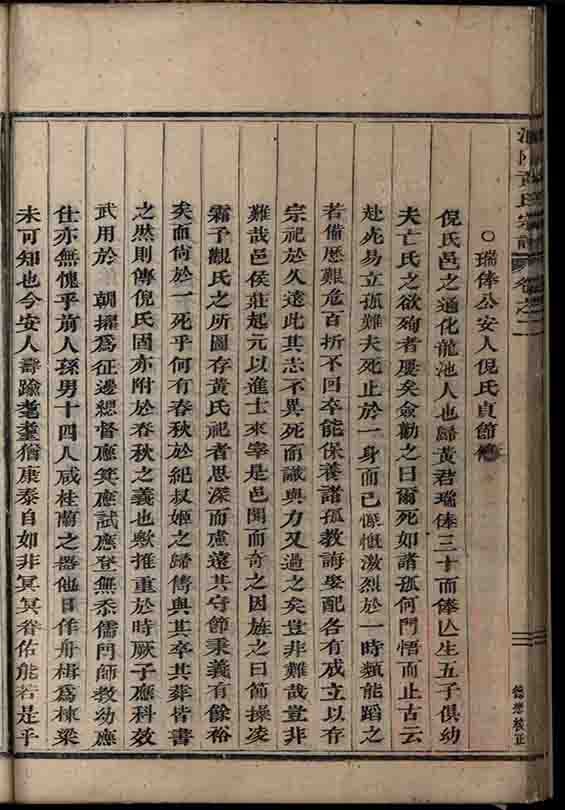 黃氏宗譜 卷之二
○瑞俸公安人倪氏貞節傳
倪氏邑之通化龍池人也歸黃君瑞俸三十而俸亾生五子俱幼
夫亡氏之欲殉者屢矣僉勸之曰爾死如諸孤何門悟而止古云
赴死易立孤難夫死止於一身而已慷慨激烈於一時類能蹈之
若備歷艱危百折不回卒能保養諸孤教誨娶配各有成立以存
宗祀於久遠此其志不異死而識與力又過之矣豈非難哉豈非
難哉邑侯莊起元以進士來宰是邑聞而奇之因旌之曰節操凌
霜予觀氏之所圖存黃氏祀者思深而慮遠其守節秉義有餘裕
矣而尚於一死乎何有春秋於紀叔姬之歸酅與其卒其葬皆書
之然則傳倪氏固亦附於春秋之義也歟推重於時厥子應科效
武用於 朝擢為征邊總督應筴應試應登無忝儒門師教幼應
仕亦無愧乎前人孫男十四人咸桂蘭之器他日作舟楫為棟梁
未可知也今安人壽踰耄耋猶康泰自如非冥冥眷佑能若是乎
德懋校正